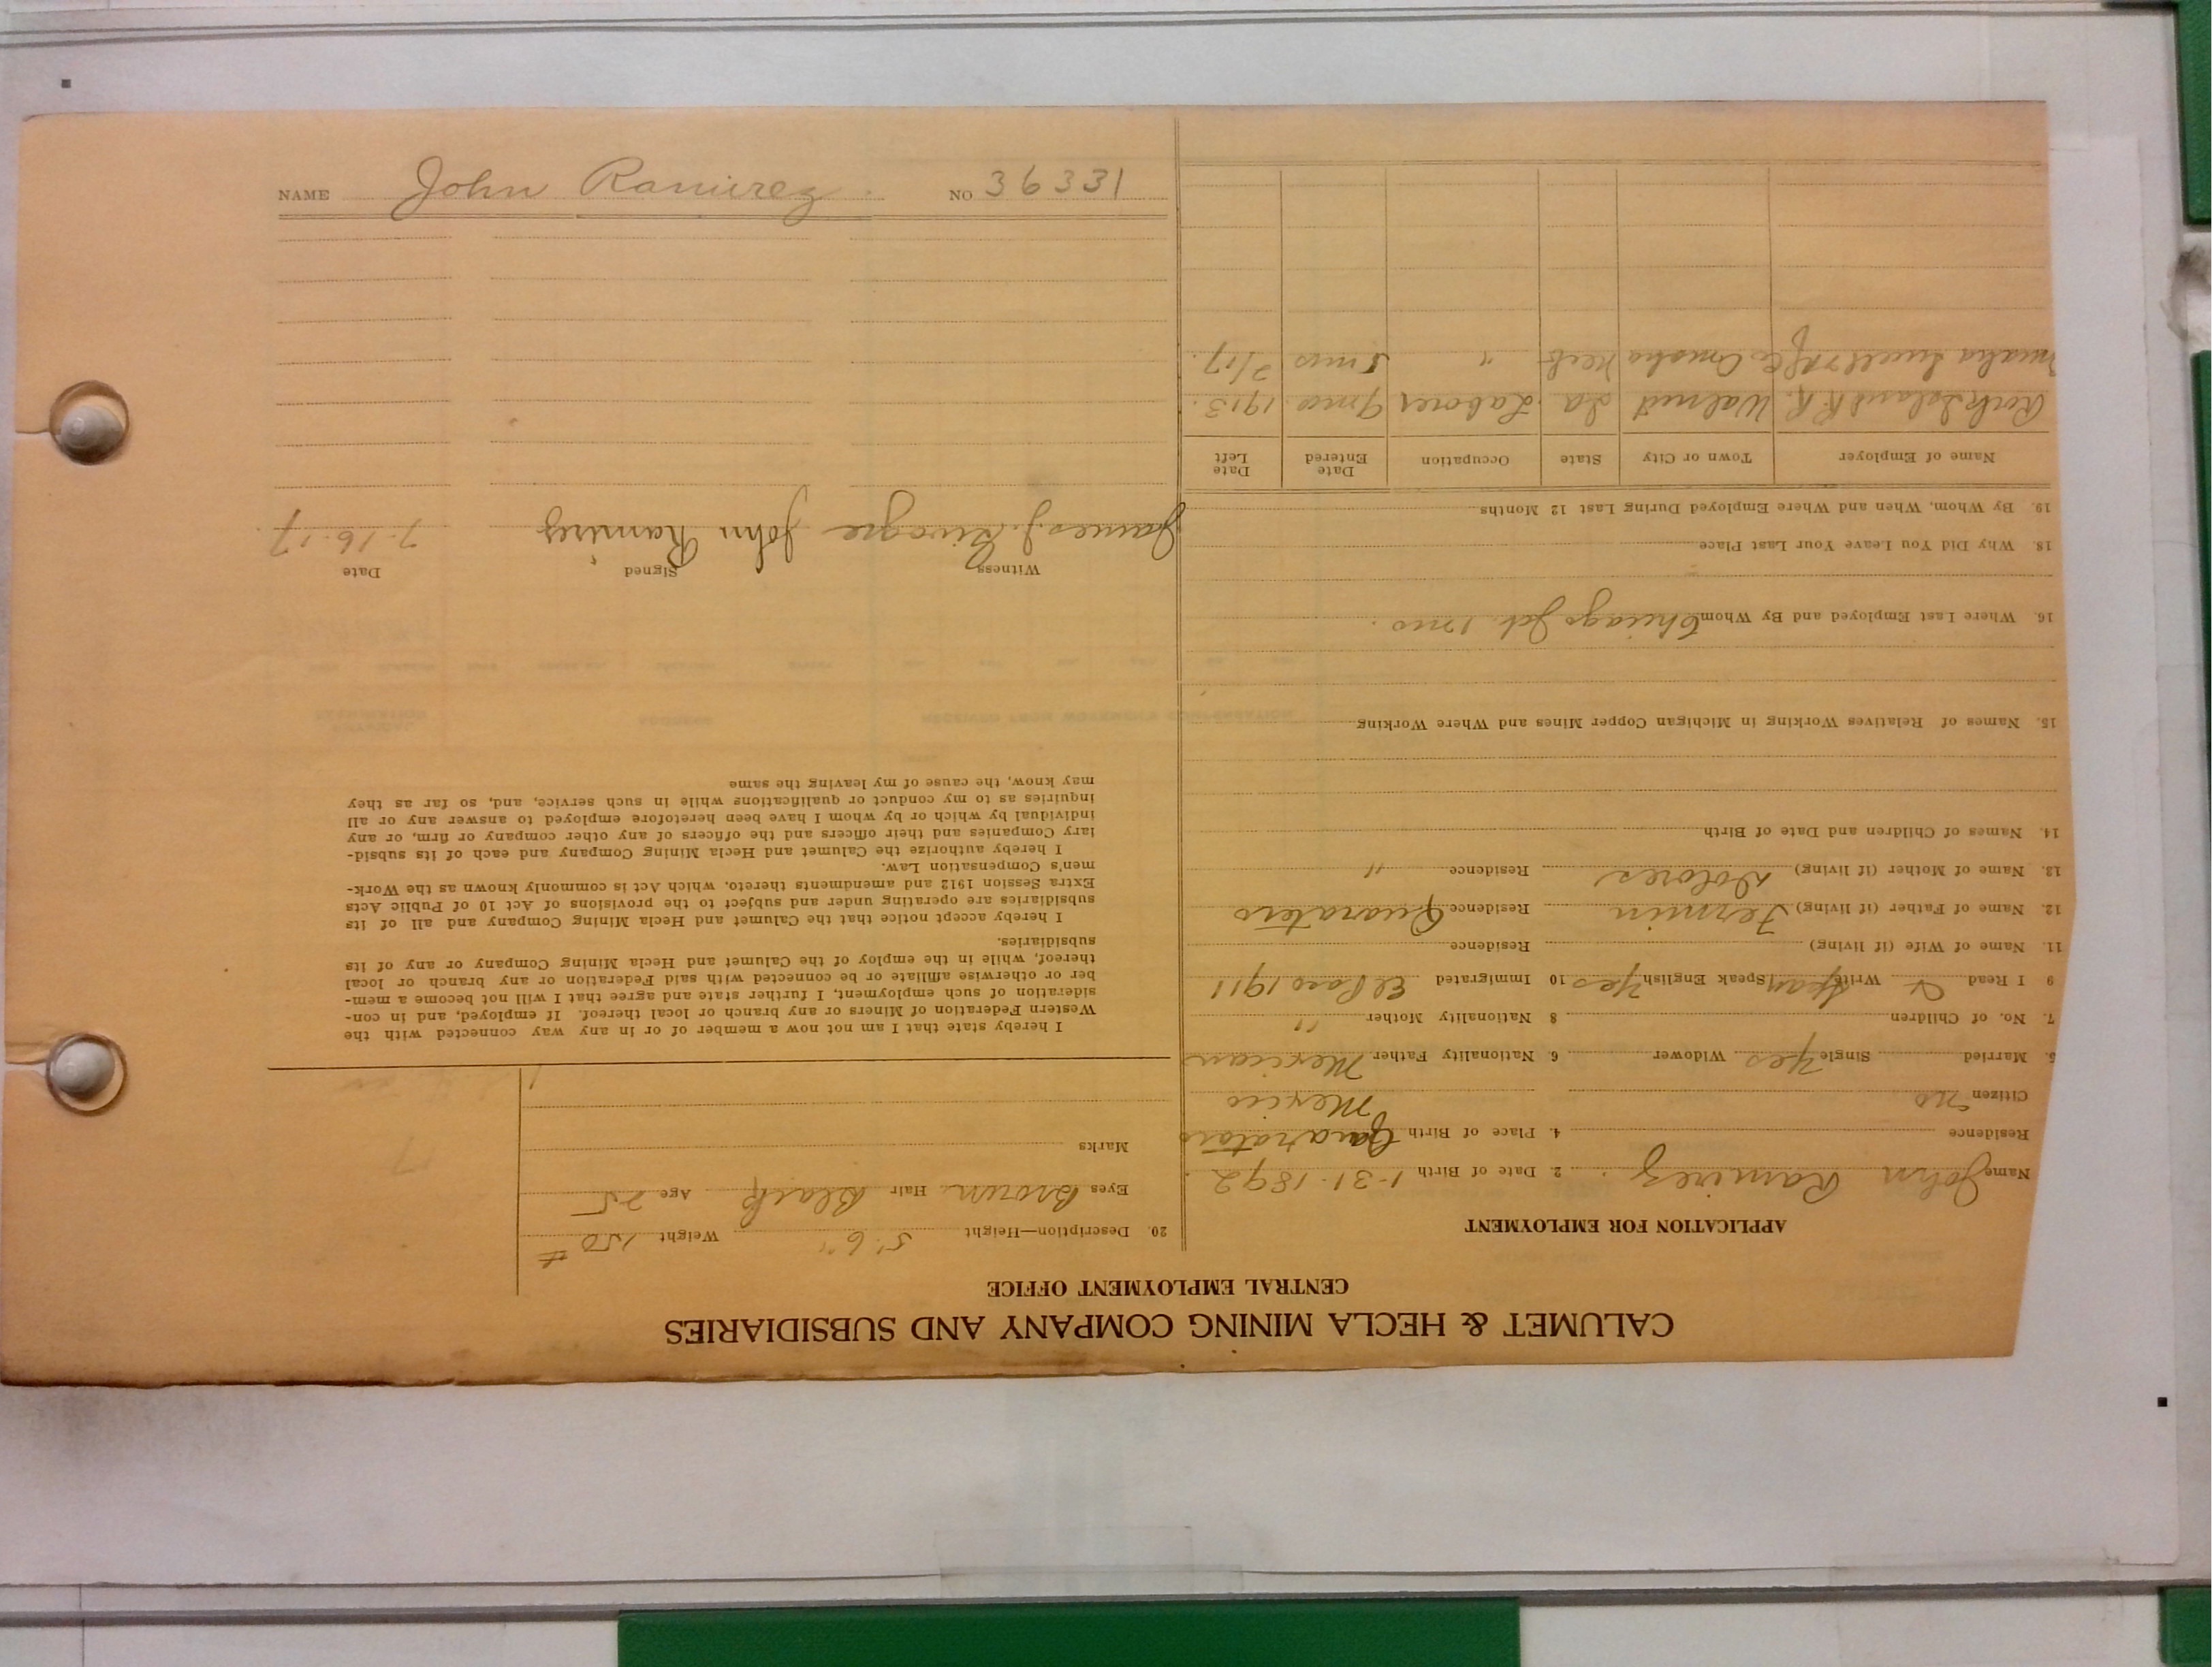 CALUMET & HECLA MINING COMPANY AND SUBSIDIARIES
CENTRAL EMPLOYMENT OFFICE
APPLICATION FOR EMPLOYMENT
Name John Ramirez. 2. Date of Birth 1-31-1892.
Residence 4. Place of Birth
Citizen no Mexico
5. Married Single Yes Widower 6. Nationality Father Mexican
7. No. of Children 8 Nationality Mother "
9 I Read Write Span Speak English Yes 10 Immigrated El Paso 1911
11. Name of Wife (if living) Residence
12. Name of Father (if living) Fermin Residence
13. Name of Mother (if living) Dolores Residence "
14. Names of Children and Date of Birth
15. Names of Relatives Working in Michigan Copper Mines and Where Working
16. Where Last Employed and By Whom Chicago
18. Why Did You Leave Your Last Place
19. By Whom, When and Where Employed During Last 12 Months
Name of Employer Town or City State Occupation Date Entered Date Left
Rock Island R.R. Walnut Ia Laborer 9 mos. 1913.
Omaha Omaha Neb " 5 mos 2/17.
20. Description—Height 5' 6" Weight 150 #
Eyes Brown. Hair Black Age 25
Marks
I hereby state that I am not now a member of or in any way connected with the
Western Federation of Miners or any branch or local thereof. If employed, and in con-
sideration of such employment, I further state and agree that I will not become a mem-
ber or otherwise affiliate or be connected with said Federation or any branch or local
thereof, while in the employ of the Calumet and Hecla Mining Company or any of its
subsidiaries.
I hereby accept notice that the Calumet and Hecla Mining Company and all of its
subsidiaries are operating under and subject to the provisions of Act 10 of Public Acts
Extra Session 1912 and amendments thereto, which Act is commonly known as the Work-
men's Compensation Law.
I hereby authorize the Calumet and Hecla Mining Company and each of its subsid-
iary Companies and their officers and the officers of any other company or firm, or any
individual by which or by whom I have been heretofore employed to answer any or all
inquiries as to my conduct or qualifications while in such service, and, so far as they
may know, the cause of my leaving the same
Witness Signed Date
James J. John Ramirez 7-16-17.
NAME John Ramirez. NO 36331